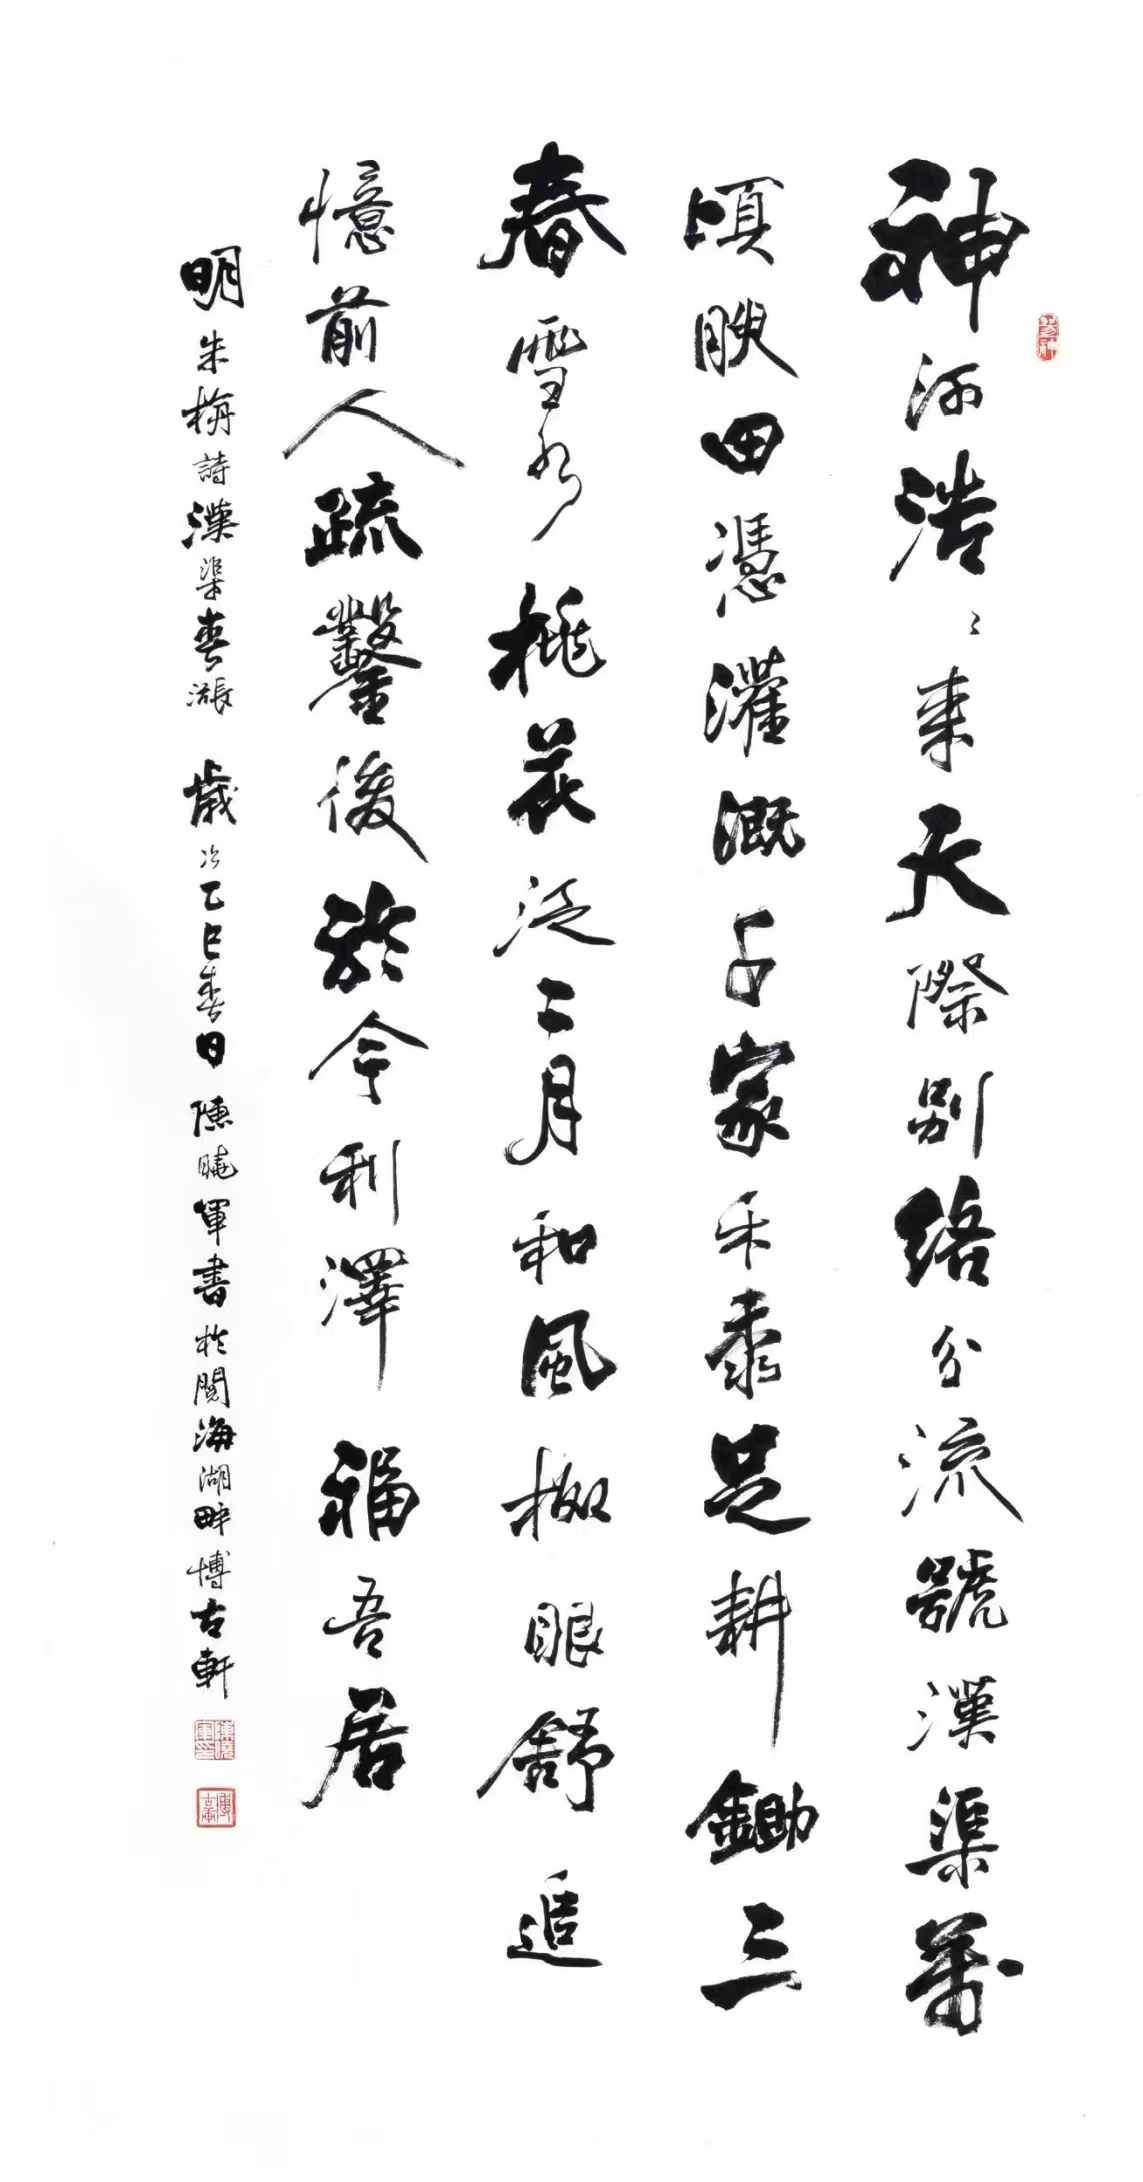 神河浩〻来天際别络分流號漢渠萬
頃腴田憑灌溉千家禾黍足耕鋤三
春雪水桃花泛二月和風柳眼舒追
憶前人疏鑿後於今利澤福吾居
明朱栴詩漢渠春漲 歲次乙巳春日陳曉軍書於閱海湖畔博古軒